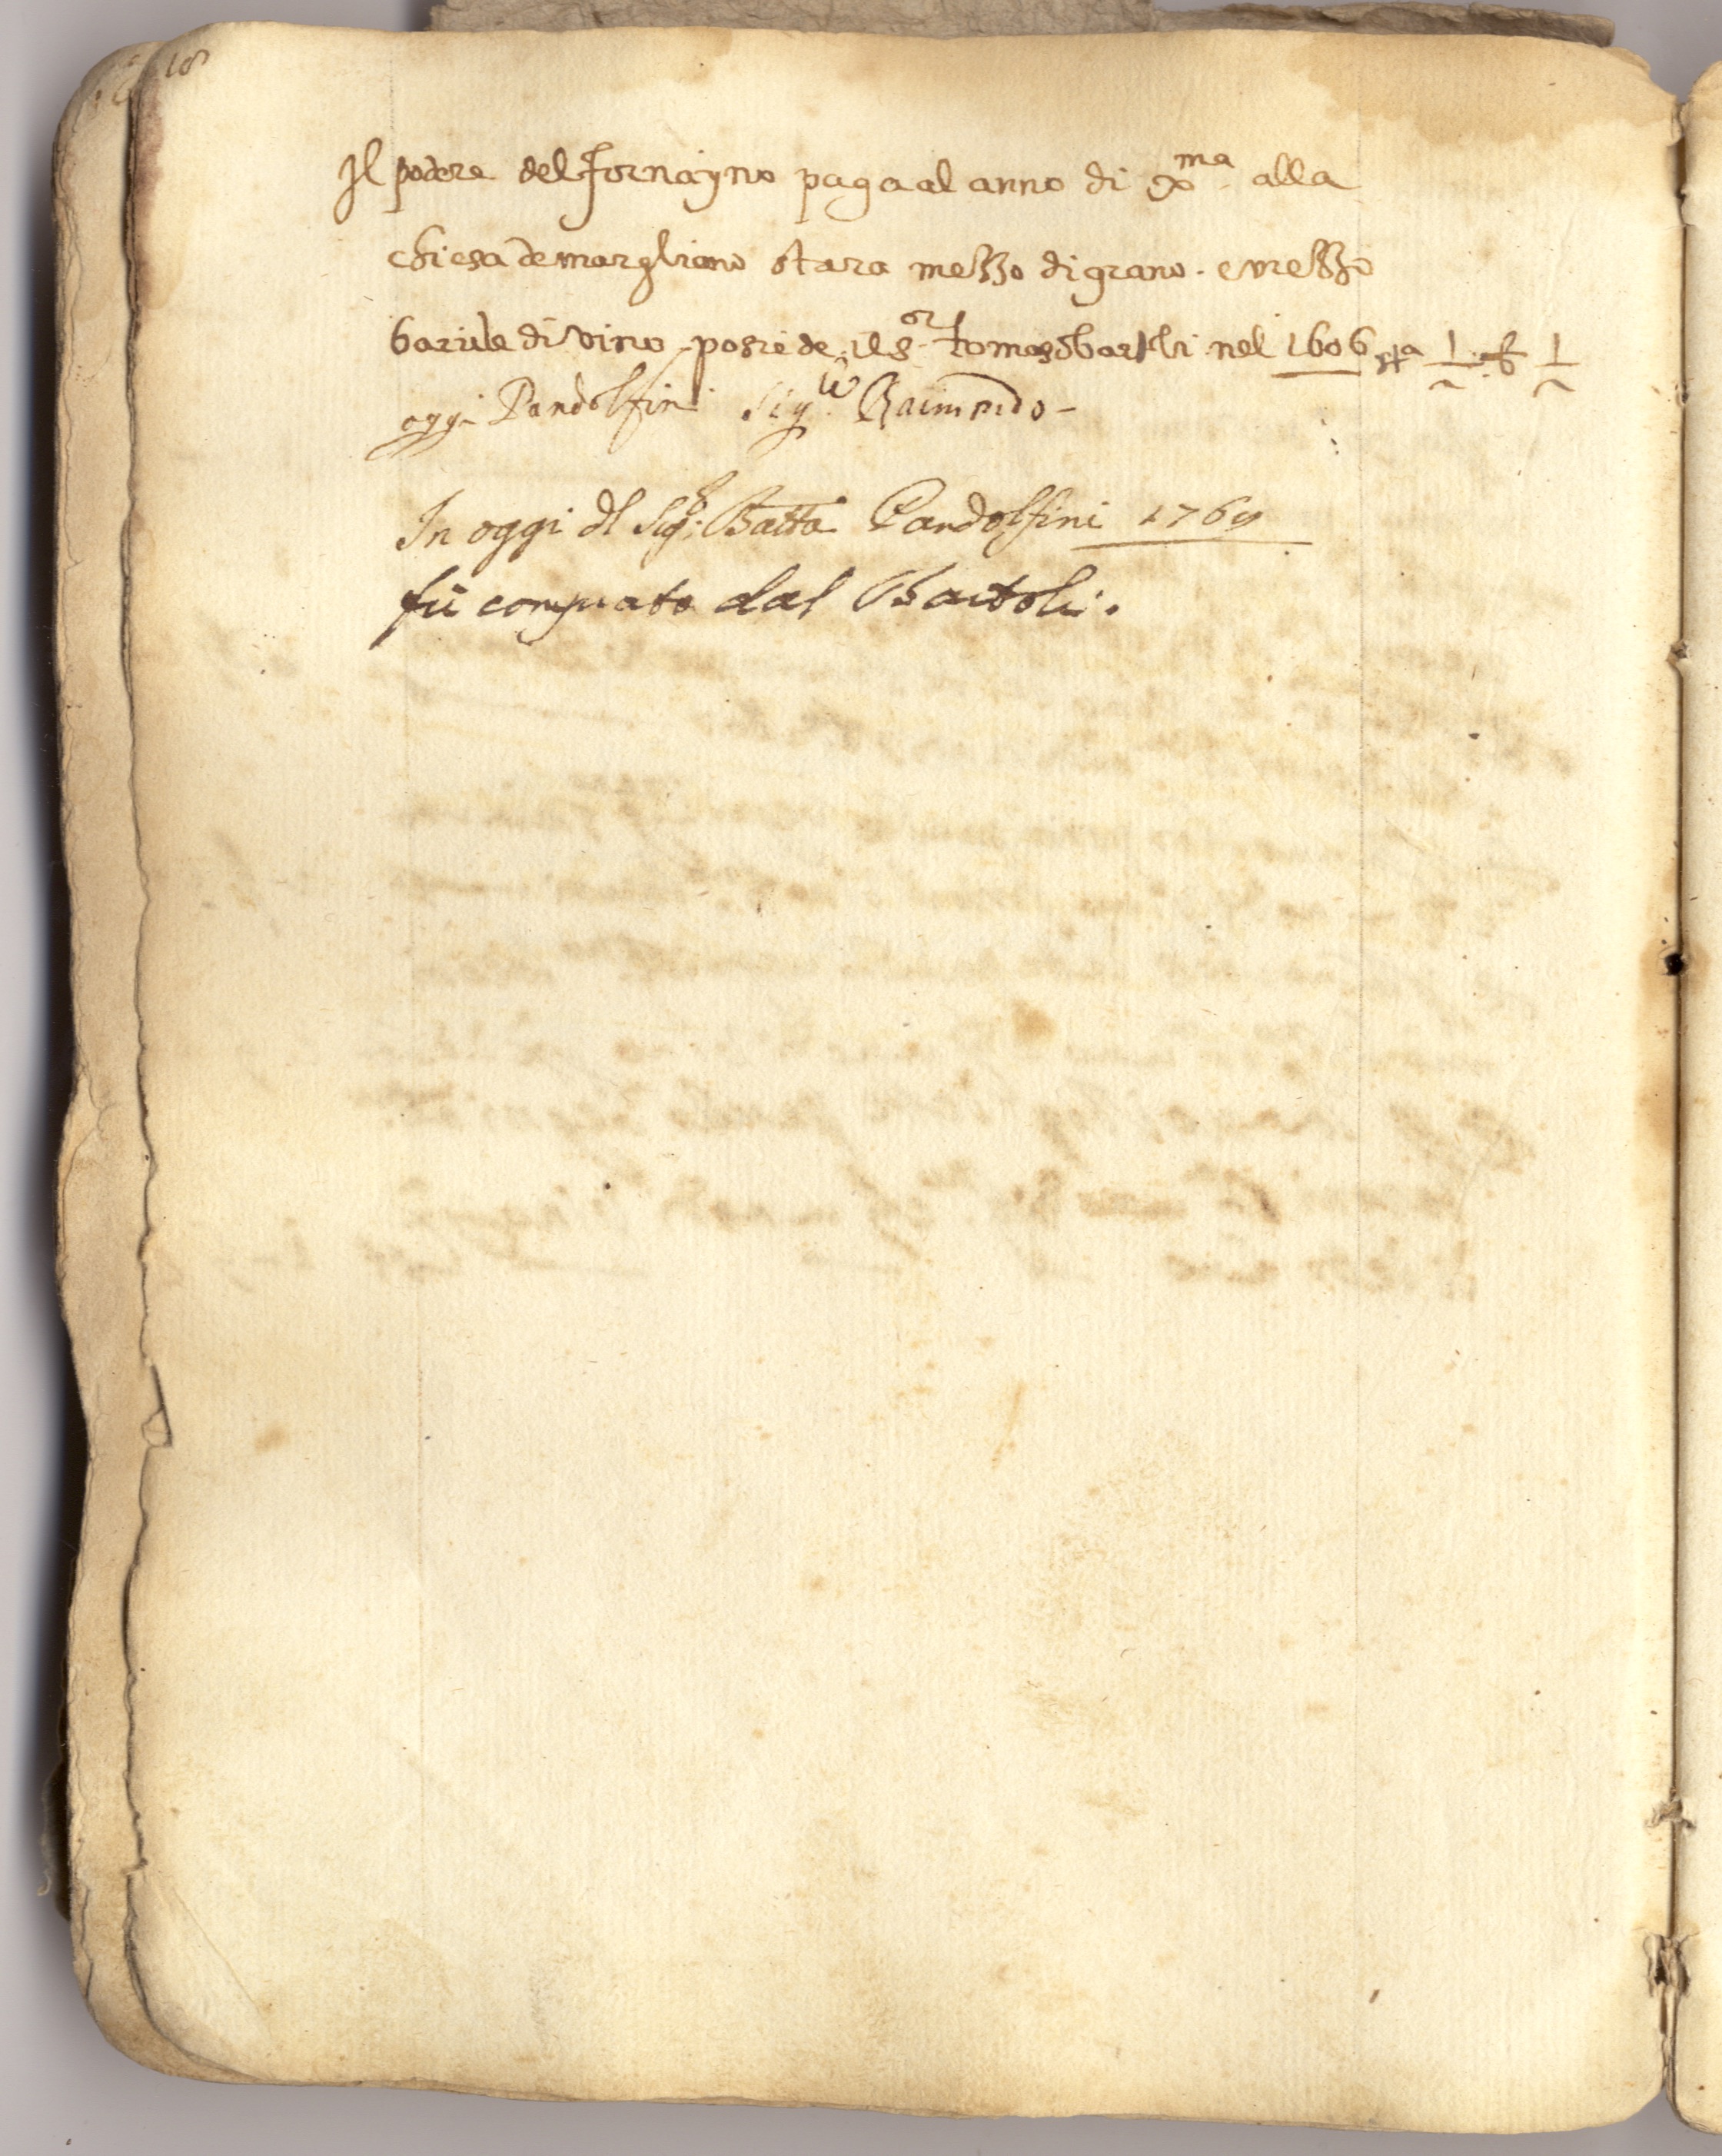 18
Il podere del fornaçino paga al anno di Xma. alla
chiesa de margliano stara mezzo di grano. e mezzo
barile di vino posiede il s.or tomaso bartoli nel 1606 sta 1/2 b 1/2
oggi Pandolfini Sig.re Raimondo -
In oggi dl Sig:e Batta Pandolfini 1769
fù comprato dal Bartoli.